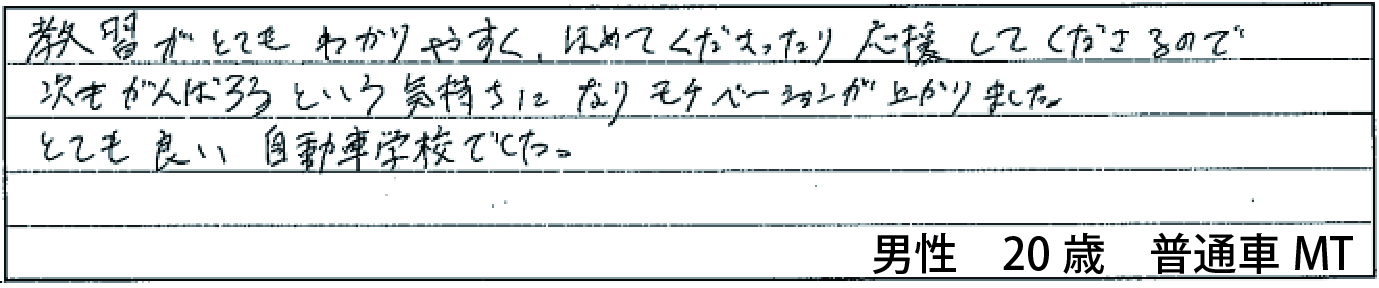 教習がとてもわかりやすく、ほめてくださったり応援してくださるので
次もがんばろうという気持ちになりモチベーションが上がりました。
とても良い自動車学校でした。
男性 20歳 普通車MT